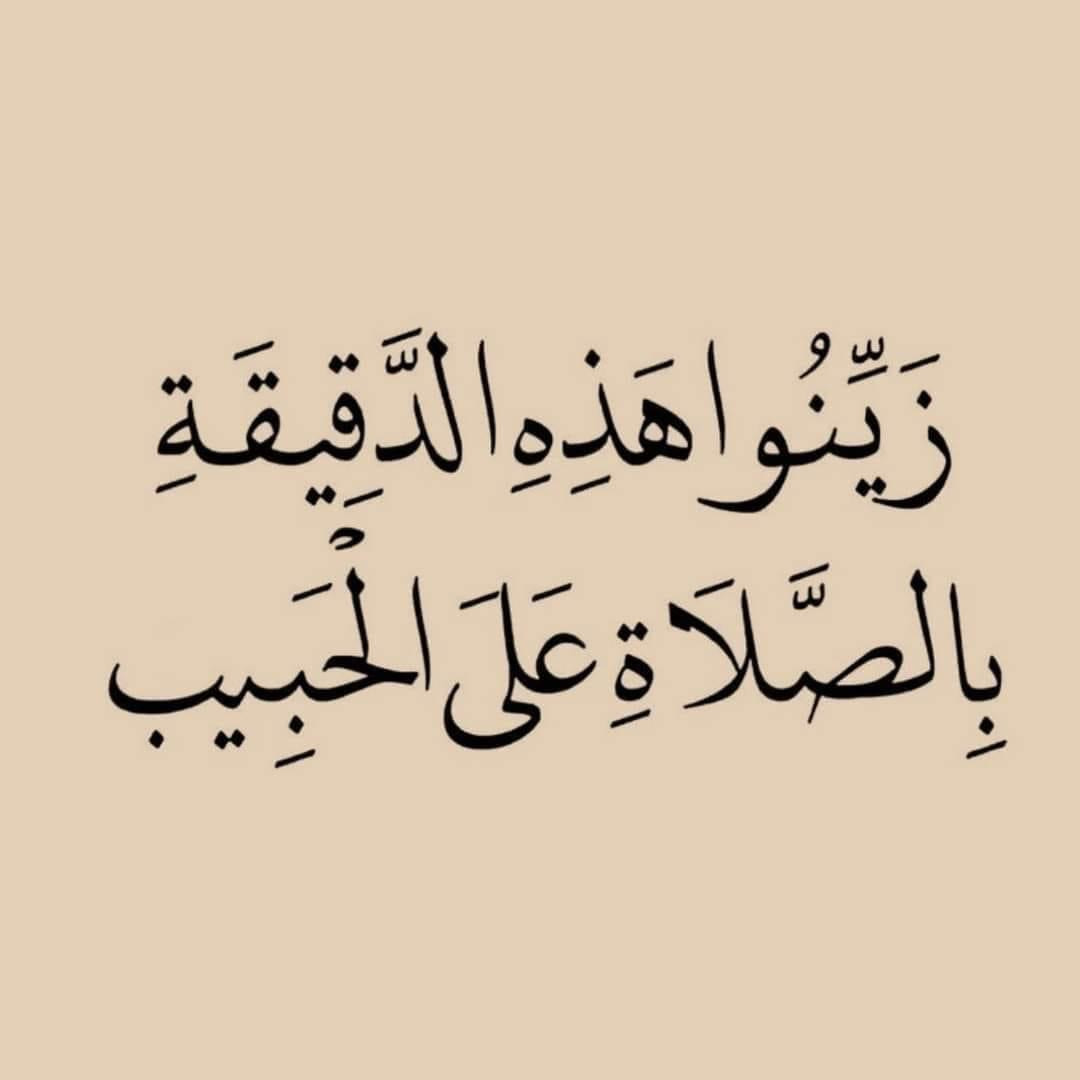 زَيِّنُوا هَذِهِ الدَّقِيقَةِ
بِالصَّلَاةِ عَلَى الْحَبِيب